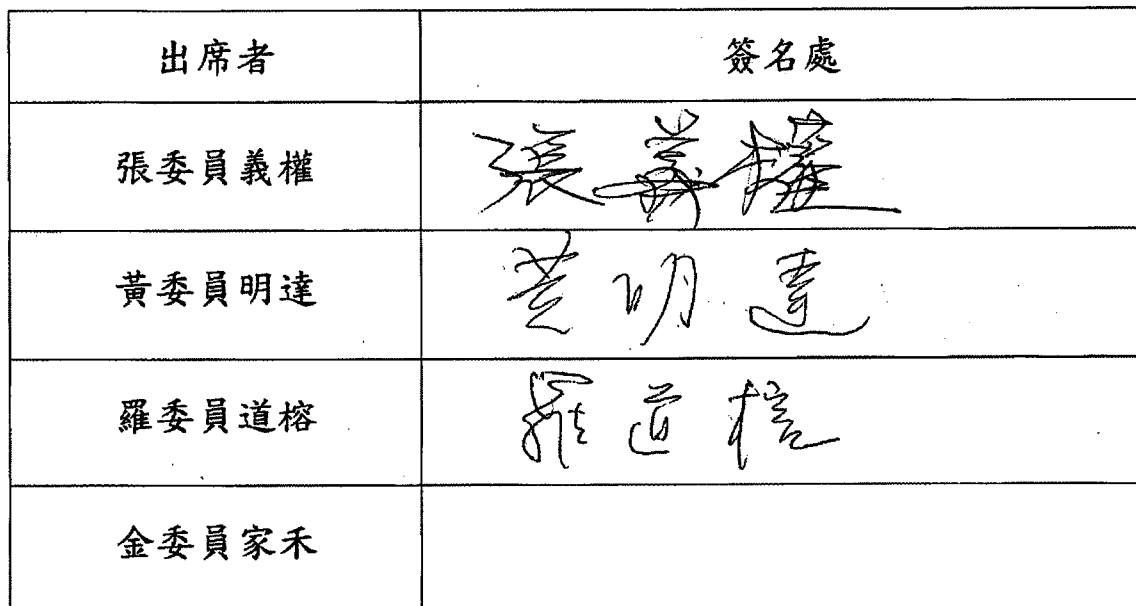 出席者 簽名處
張委員義權 張義權
黃委員明達 黃明達
羅委員道榕 羅道榕
金委員家禾